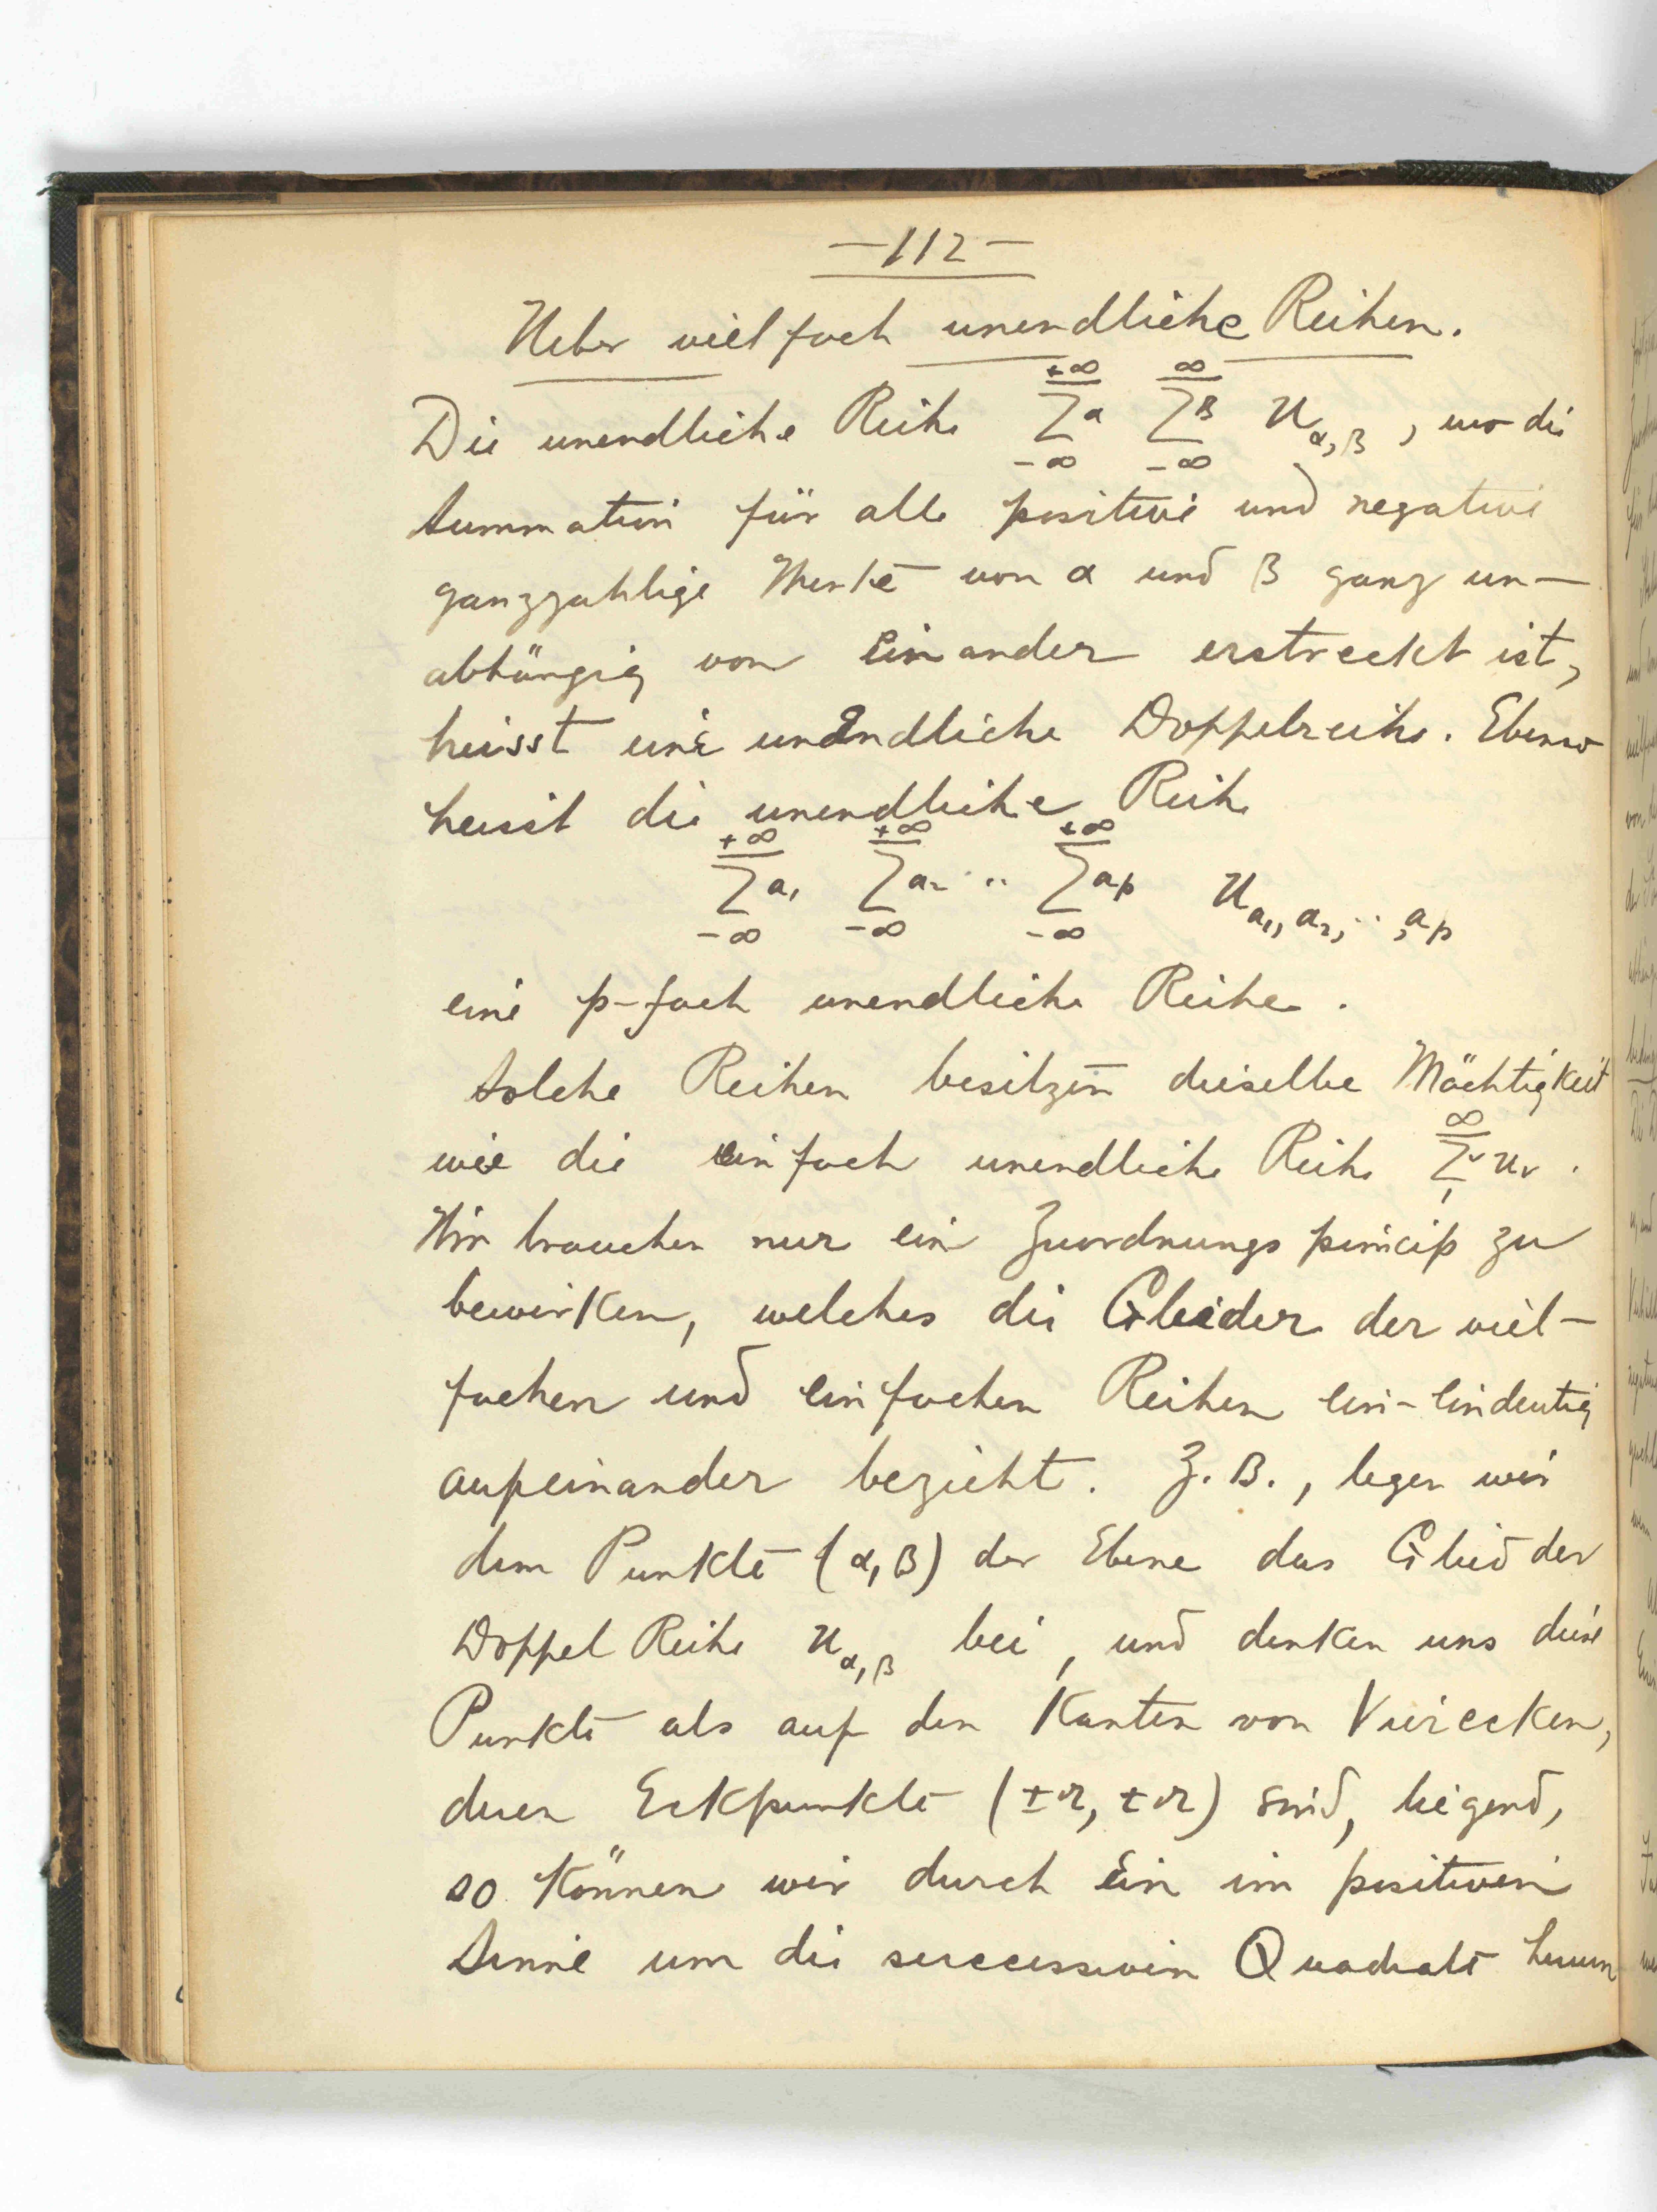 —112—
Ueber vielfach unendliche Reihen.
Die unendliche Reihe $\sum_{-\infty}^{+\infty}{}^{\alpha} \sum_{-\infty}^{\infty}{}^{\beta} u_{\alpha,\beta}$, wo die
Summation für alle positive und negative
ganzzahlige Werte von α und β ganz un-
abhängig von einander erstreckt ist,
heisst eine unendliche Doppelreihe. Ebenso
heisst die unendliche Reihe
$\sum_{-\infty}^{+\infty}{}^{a_1} \sum_{-\infty}^{+\infty}{}^{a_2} \cdots \sum_{-\infty}^{+\infty}{}^{a_p} u_{a_1, a_2, \cdots, a_p}$
eine p-fach unendliche Reihe.
Solche Reihen besitzen dieselbe Mächtigkeit
wie die einfach unendliche Reihe $\sum_{1}^{\infty}{}^{\nu} u_\nu$.
Wir brauchen nur ein Zuordnungsprincip zu
bewirken, welches die Glieder der viel-
fachen und einfachen Reihen ein-eindeutig
aufeinander bezieht. Z. B., legen wir
dem Punkte (α, β) der Ebene das Glied der
Doppel Reihe $u_{\alpha,\beta}$ bei, und denken uns diese
Punkte als auf den Kanten von Vierecken,
deren Eckpunkte (±r, ±r) sind, liegend,
so können wir durch ein im positiven
Sinne um die successiven Quadrate herum